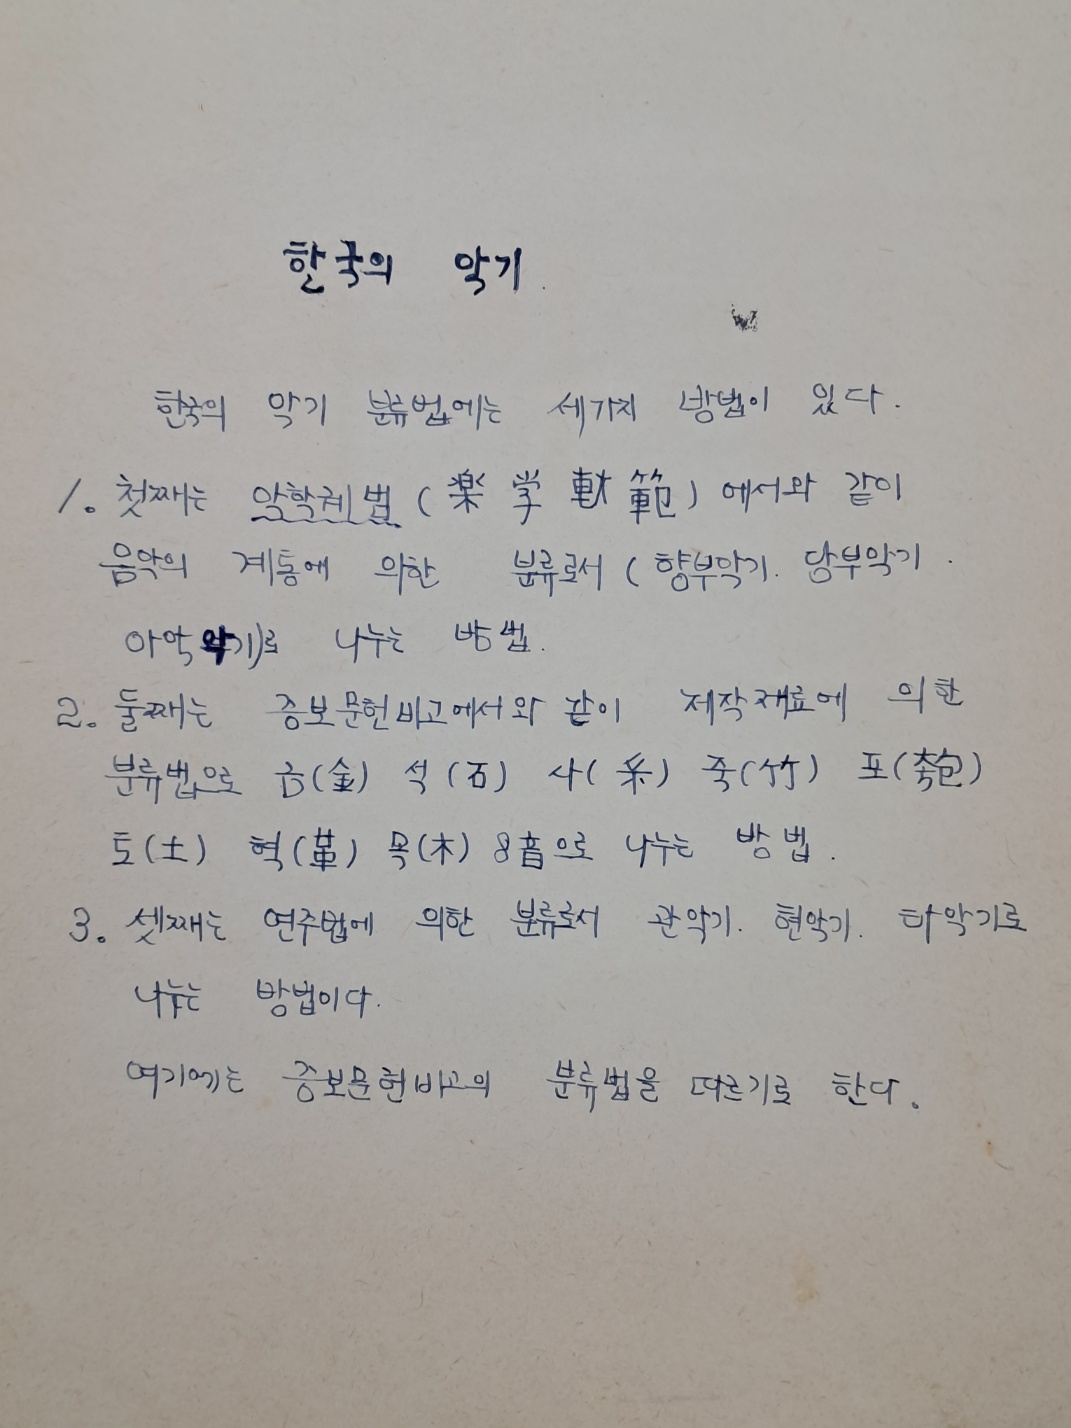 한국의 악기
한국의 악기 분류법에는 세가지 방법이 있다.
1. 첫째는 악학궤범 (楽学軌範) 에서와 같이
음악의 계통에 의한 분류로서 (향부악기. 당부악기.
아악악기)로 나누는 방법.
2. 둘째는 증보문헌비고에서와 같이 제작재료에 의한
분류법으로 금(金) 석(石) 사(糸) 죽(竹) 포(匏)
토(土) 혁(革) 목(木) 8音으로 나누는 방법.
3. 셋째는 연주법에 의한 분류로서 관악기. 현악기. 타악기로
나누는 방법이다.
여기에는 증보문헌비고의 분류법을 따르기로 한다.